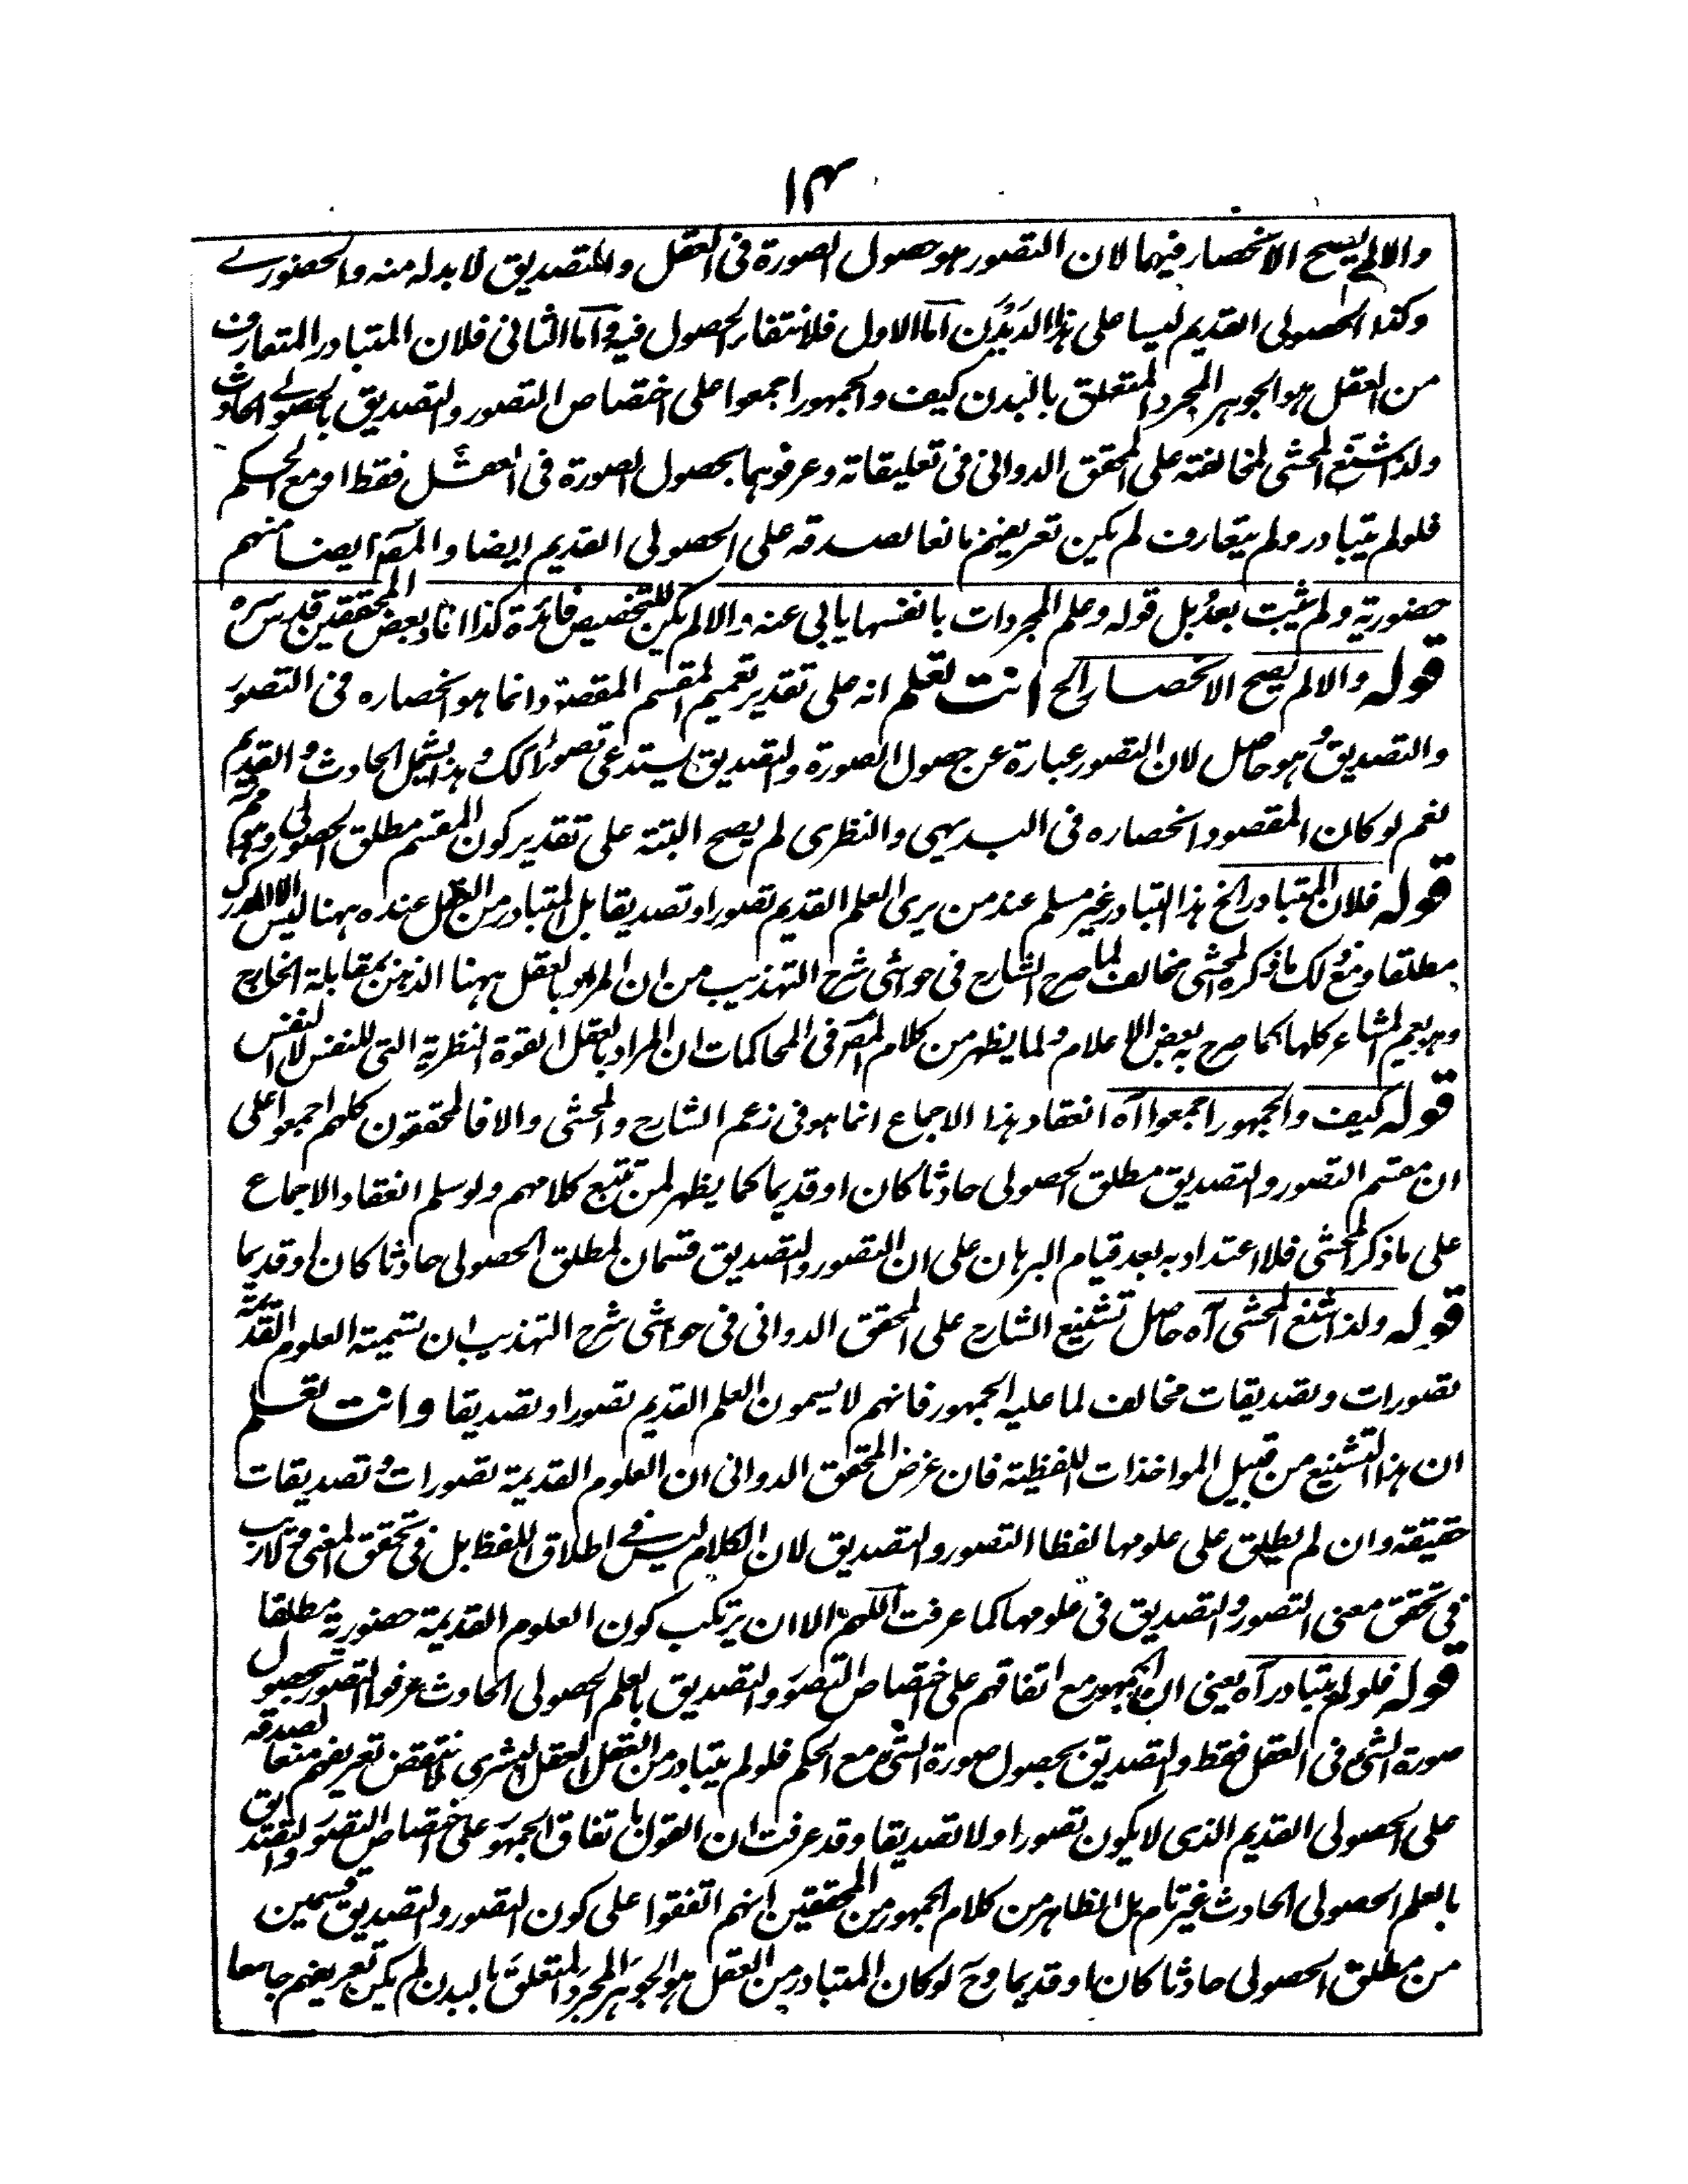 ١٤
والا لم يصح الانحصار فيهما لان التصور هو حصول الصورة فى العقل والتصديق لا بد له منه والحضورى
وكذا الحصولى القديم ليسا على هذا الديدن اما الاول فلانتفاء الحصول فيه واما الثانى فلان المتبادر المتعارف
من العقل هو الجوهر المجرد المتعلق بالبدن كيف والجمهور اجمعوا على اختصاص التصور والتصديق بالحصولى الحادث
ولذا شنع المحشى لمخالفته على المحقق الدوانى فى تعليقاته وعرفوهما بحصول الصورة فى العقل فقط او مع الحكم
فلو لم يتبادر ولم يتعارف لم يكن تعريفهم مانعا لصدقه على الحصولى القديم ايضا والمص ايضا منهم
حضورية ولم يثبت بعد بل قوله وعلم المجردات بانفسها يابى عنه والا لم يكن للتخصيص فائدة كذا افاد بعض المحققين قدس سره
قوله والا لم يصح الانحصار الخ انت تعلم انه على تقدير تعميم المقسم المقصود انما هو انحصاره فى التصور
والتصديق وهو حاصل لان التصور عبارة عن حصول الصورة والتصديق يستدعى تصورا كك وهذا يشمل الحادث والقديم
نعم لو كان المقصود انحصاره فى البديهى والنظرى لم يصح البتة على تقدير كون المقسم مطلق الحصولى وهو
قوله فلان المتبادر الخ هذا التبادر غير مسلم عند من يرى العلم القديم تصورا وتصديقا بل المتبادر من العقل عنده ههنا ليس الا المدرك
مطلقا ومع ذلك ما ذكره المحشى مخالف لما صرح الشارح فى حواشى شرح التهذيب من ان المراد بالعقل ههنا الذهن بمقابلة الخارج
وهو يعم المشاعر كلها كما صرح به بعض الاعلام ولما يظهر من كلام المص فى المحاكمات ان المراد بالعقل القوة النظرية التى للنفس لا النفس
قوله كيف والجمهور اجمعوا آه انعقاد هذا الاجماع انما هو فى زعم الشارح والمحشى والا فالمحققون كلهم اجمعوا على
ان مقسم التصور والتصديق مطلق الحصولى حادثا كان او قديما كما يظهر لمن تتبع كلامهم ولو سلم انعقاد الاجماع
على ما ذكر المحشى فلا اعتداد به بعد قيام البرهان على ان التصور والتصديق قسمان لمطلق الحصولى حادثا كان او قديما
قوله ولذا شنع المحشى آه حاصل تشنيع الشارح على المحقق الدوانى فى حواشى شرح التهذيب ان تسمية العلوم القديمة
تصورات وتصديقات مخالف لما عليه الجمهور فانهم لا يسمون العلم القديم تصورا وتصديقا وانت تعلم
ان هذا التشنيع من قبيل المواخذات اللفظية فان غرض المحقق الدوانى ان العلوم القديمة تصورات وتصديقات
حقيقة وان لم يطلق على علومها لفظا التصور والتصديق لان الكلام ليس فى اطلاق اللفظ بل فى تحقق المعنى ولا ريب
فى تحقق معنى التصور والتصديق فى علومها كما عرفت اللهم الا ان يرتكب كون العلوم القديمة حضورية مطلقا
قوله فلو لم يتبادر آه يعنى ان الجمهور مع اتفاقهم على اختصاص التصور والتصديق بالعلم الحصولى الحادث عرفوا التصور بحصول
صورة الشئ فى العقل فقط والتصديق بحصول صورة الشئ مع الحكم فلو لم يتبادر من العقل العقل البشرى لانتقض تعريفهم منعا لصدقه
على الحصولى القديم الذى لا يكون تصورا ولا تصديقا وقد عرفت ان القول باتفاق الجمهور على اختصاص التصور والتصديق
بالعلم الحصولى الحادث غير تام بل الظاهر من كلام الجمهور من المحققين انهم اتفقوا على كون التصور والتصديق قسمين
من مطلق الحصولى حادثا كان او قديما وح لو كان المتبادر من العقل هو الجوهر المجرد المتعلق بالبدن لم يكن تعريفهم جامعا